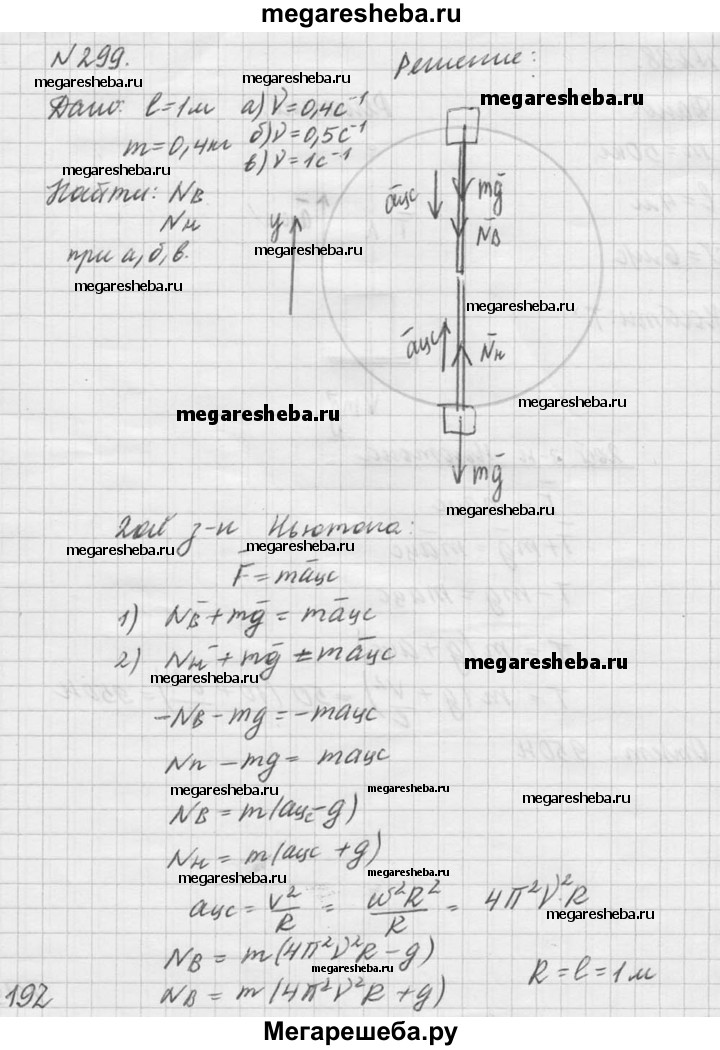 megaresheba.ru
N 299.
Решение:
megaresheba.ru
Дано: l=1м а) ν=0,4с⁻¹
megaresheba.ru
m=0,4кг б) ν=0,5с⁻¹
в) ν=1с⁻¹
megaresheba.ru
Найти: Nв
Nн
при а, б, в.
y
megaresheba.ru
megaresheba.ru
a̅цс
mg̅
N̅в
megaresheba.ru
a̅цс
N̅н
megaresheba.ru
megaresheba.ru
mg̅
megaresheba.ru
2ой з-н Ньютона:
megaresheba.ru
megaresheba.ru
F̅ = ma̅цс
1) N̅в + mg̅ = ma̅цс
2) N̅н + mg̅ = ma̅цс
megaresheba.ru
megaresheba.ru
-Nв - mg = -maцс
megaresheba.ru
Nн - mg = maцс
megaresheba.ru
megaresheba.ru
Nв = m(aцс - g)
megaresheba.ru
Nн = m(aцс + g)
megaresheba.ru
aцс = v²/R = ω²R²/R = 4π²ν²R
megaresheba.ru
megaresheba.ru
Nв = m(4π²ν²R - g)
megaresheba.ru
R = l = 1м
Nв = m(4π²ν²R + g)
megaresheba.ru
192
Мегарешеба.ру